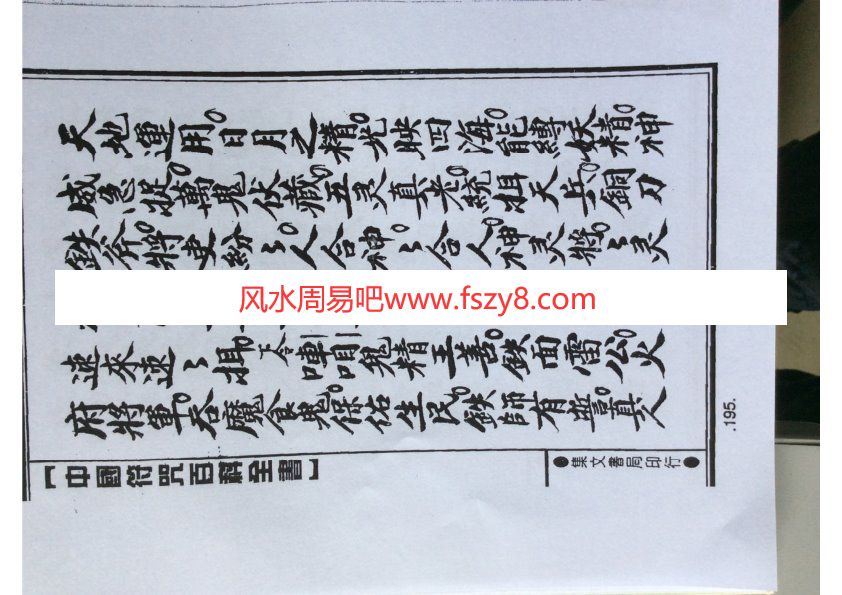 天地運用。日月之精。光映四海。能縛妖精。神
威急捉。萬鬼伏藏。五灵真老。統押天兵。銅刀
鉄斧。將吏紛〻。人合神〻。合人神灵將〻灵
风水周易吧www.fszy8.com
速來速〻攝鬼精王善。鉄面雷公。火
府將軍。吞魔食鬼。保佑生民。鉄師有誓。真人
【中國符咒百科全書】
●集文書局印行●
.195.